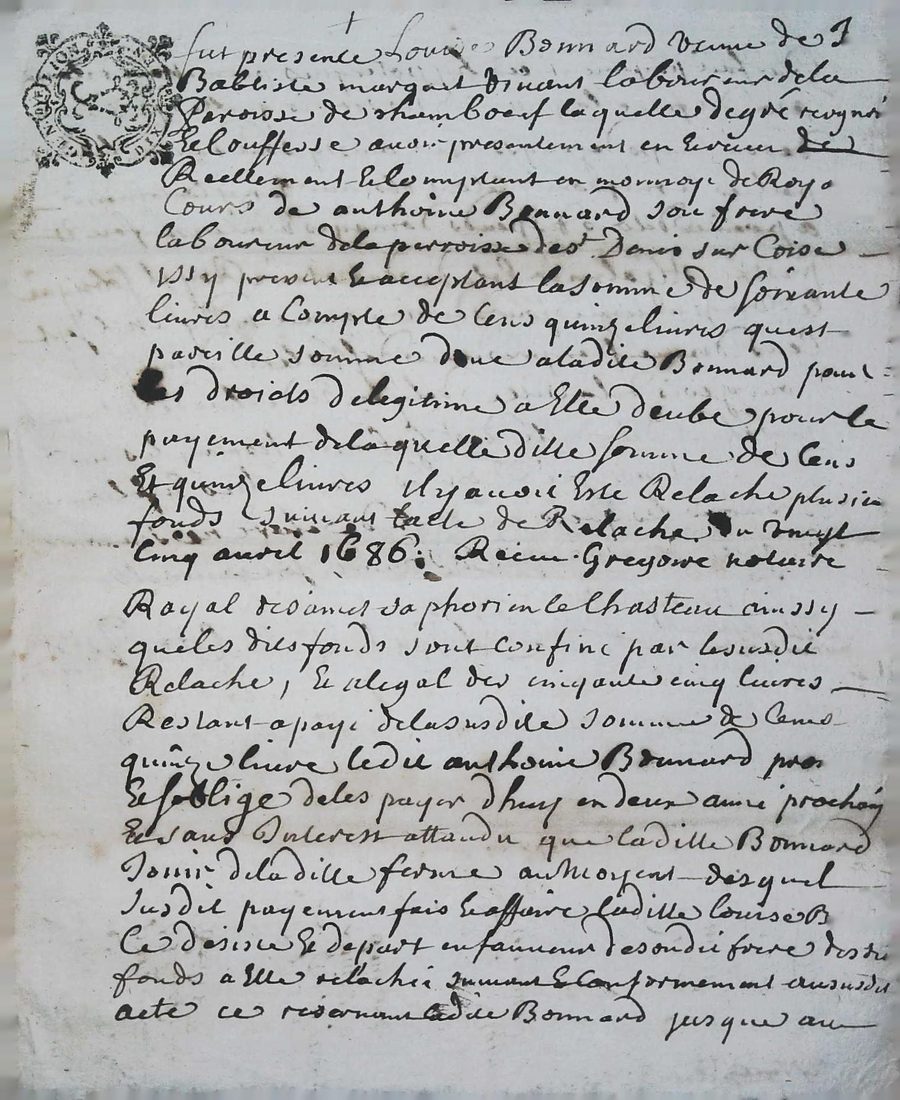 fut presente Louise Bonnard veuve de J
Babtiste marquet vivant laboureur de la
Paroisse de chamboeuf laquelle de gré
Et confesse avoir presentement en Et receu
Reellement Et Comptant en monnoye de Roy
Cours de anthoine Bonnard son frere
laboureur de la parroisse de st Denis sur Coise
Issy present Et acceptant la somme de soixante
livres a Compte de Cens quinze livres quest
pareille somme deue a ladite Bonnard pour
les droicts de legitime a Elle deube pour le
payement de laquelle ditte somme de Cens
Et quinze livres il y avoit Este Relache plusieu
fonds suivant lacte de Relache du vingt
Cinq avril 1686. Receu Gregoire notaire
Royal de saint saphorien le Chasteau ainssy
que les dits fonds sont confiné par le susdit
Relache, Et alegal des cinqante cinq livres
Restant a payé de la susdite somme de Cens
quinze livre ledit anthoine Bonnard
Et soblige de les payer dhuy en deux anné prochain
Et sans Interest attandu que ladille Bonnard
Jouir de ladille ferme au moyent desquel
susdit payement fais Et affaire ladille louise B
Ce desiste Et depart en faumeur de son dit frere
fonds a Elle relaché suivant Et Conformement au susdit
acte ce reservant ladite Bonnard jusque au